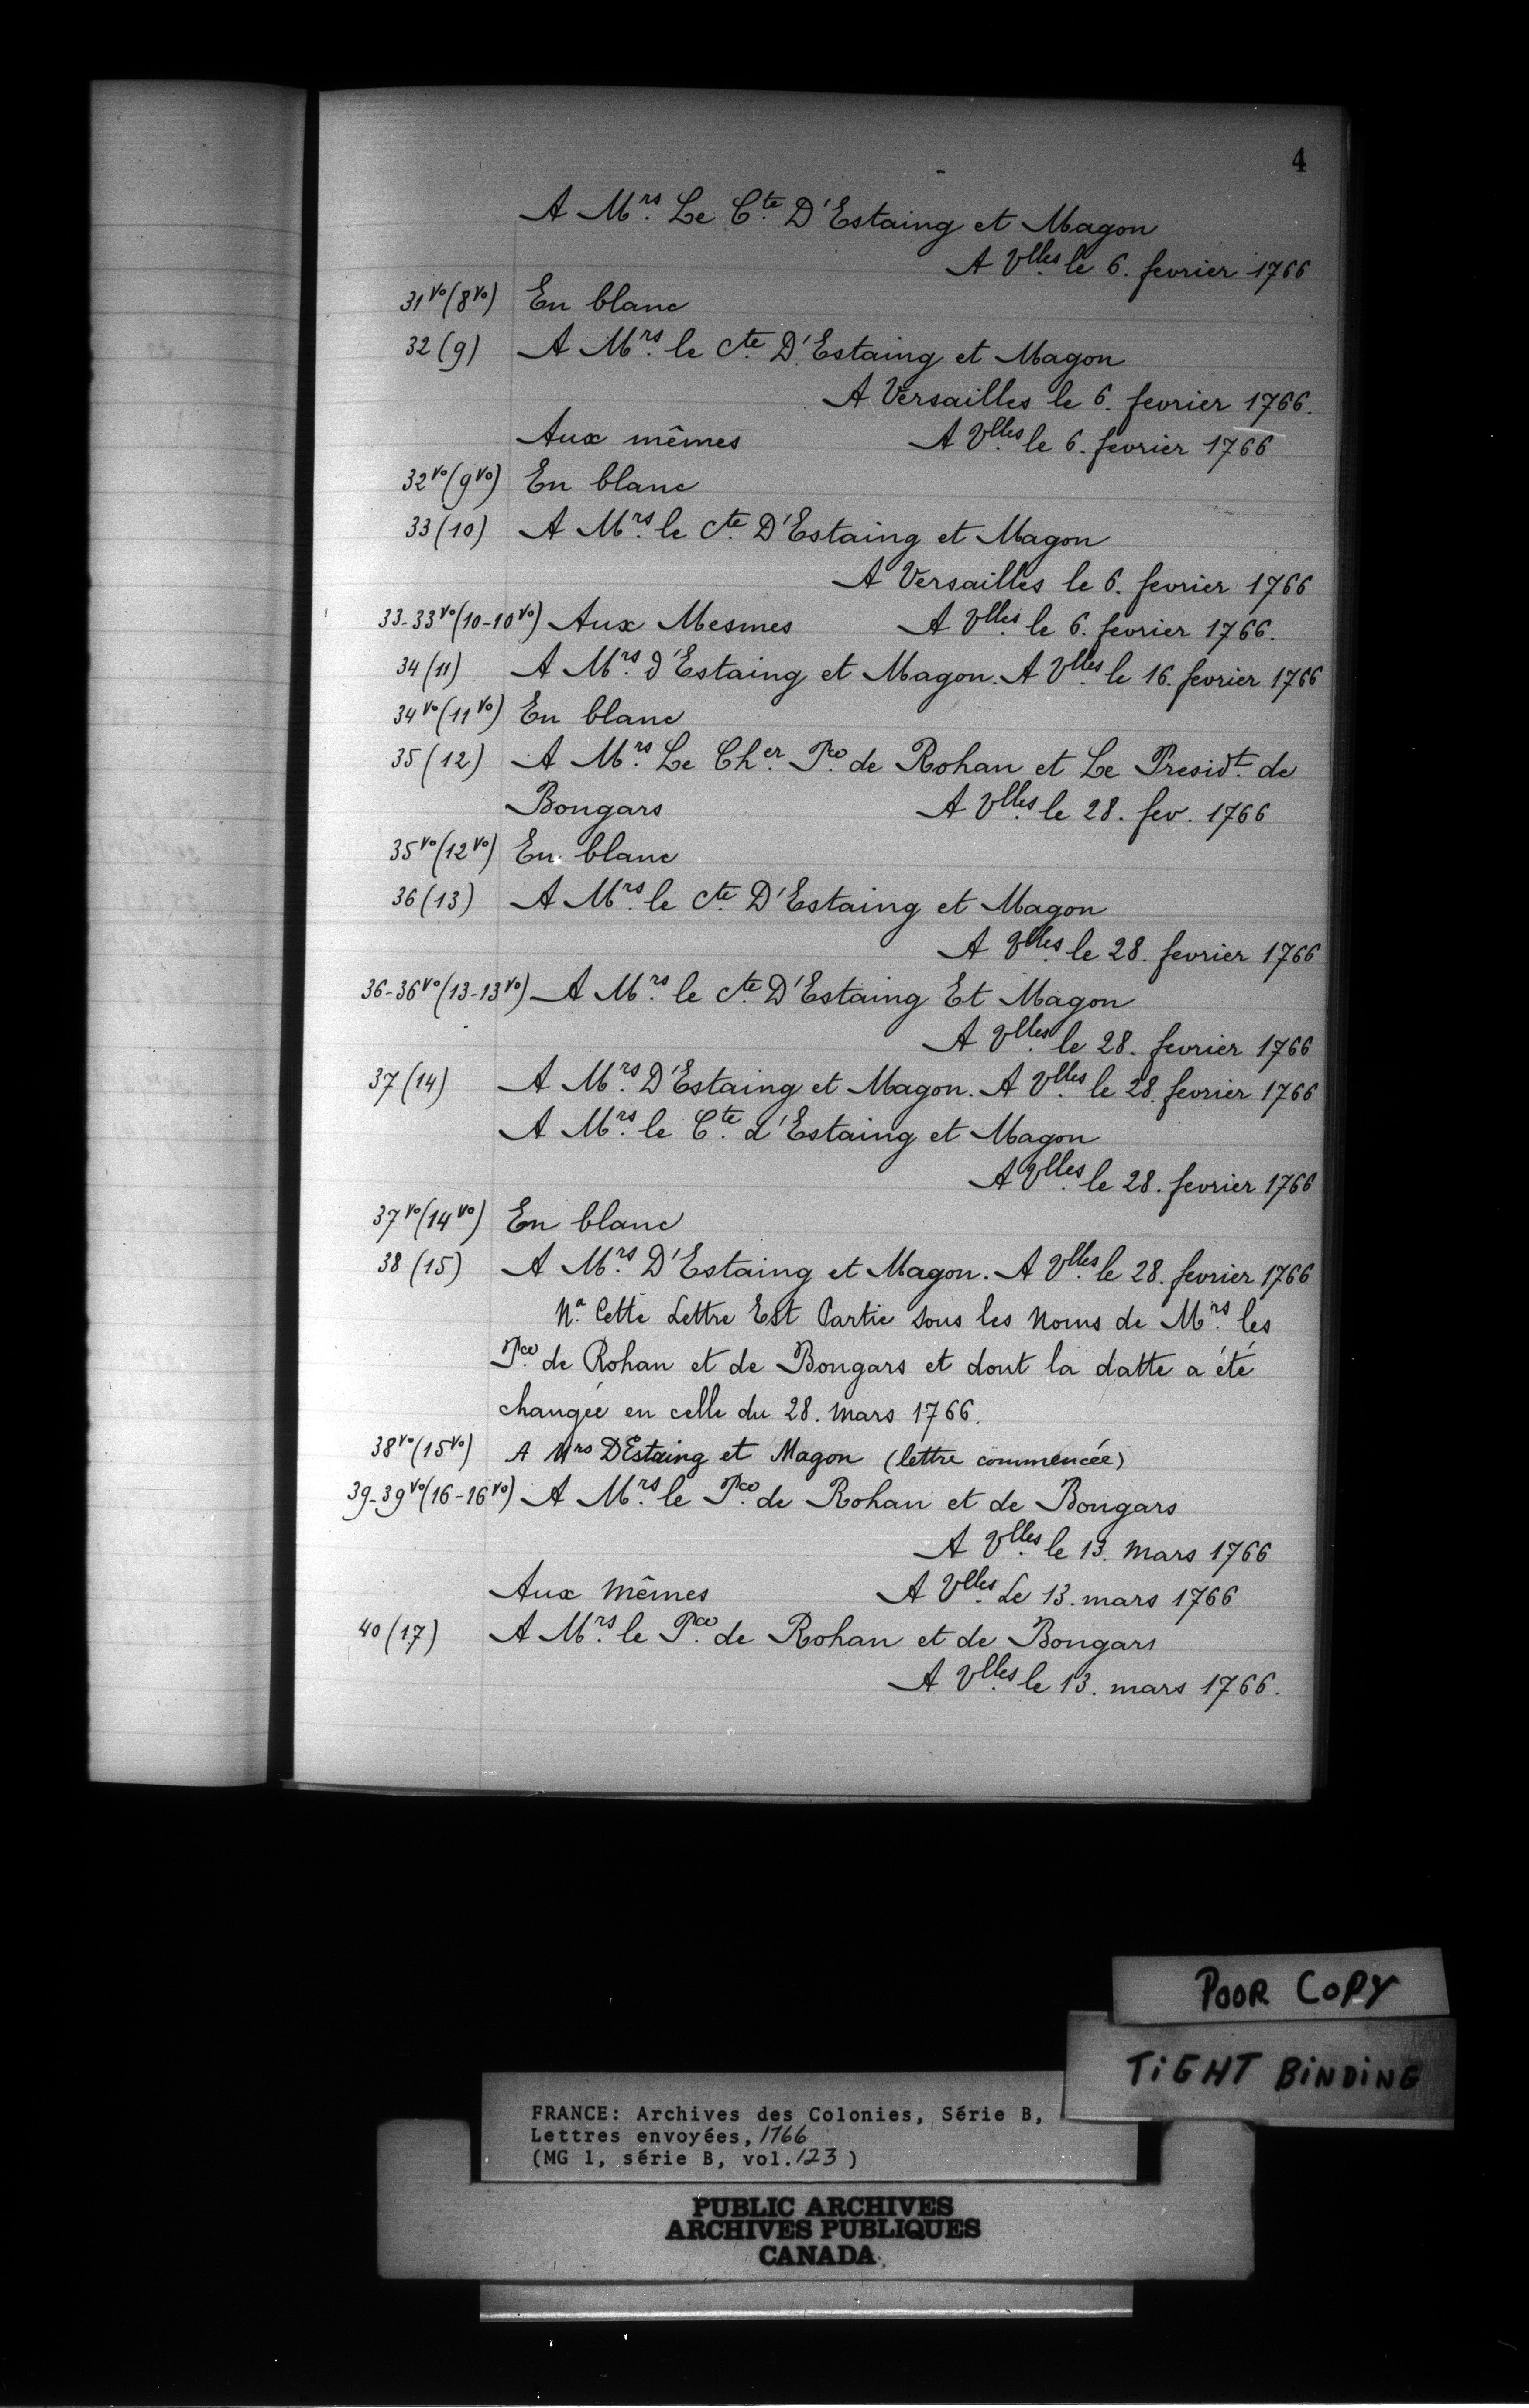 4
A Mrs. Le Cte. D'Estaing et Magon
A Vlles. le 6. fevrier 1766
31vo(8vo) En blanc
32(9) A Mrs. le Cte. D'Estaing et Magon
A Versailles le 6. fevrier 1766.
Aux mêmes A Vlles. le 6. fevrier 1766
32vo(9vo) En blanc
33(10) A Mrs. le Cte. D'Estaing et Magon
A Versailles le 6. fevrier 1766
33-33vo(10-10vo) Aux Mesmes A Vlles. le 6. fevrier 1766.
34(11) A Mrs. d'Estaing et Magon. A Vlles. le 16. fevrier 1766
34vo(11vo) En blanc
35(12) A Mrs. Le Cher. Pce. de Rohan et Le Presidt. de
Bongars A Vlles. le 28. fev. 1766
35vo(12vo) En blanc
36(13) A Mrs. le Cte. D'Estaing et Magon
A Vlles. le 28. fevrier 1766
36-36vo(13-13vo) A Mrs. le Cte. D'Estaing Et Magon
A Vlles. le 28. fevrier 1766
37(14) A Mrs. D'Estaing et Magon. A Vlles. le 28. fevrier 1766
A Mrs. le Cte. d'Estaing et Magon
A Vlles. le 28. fevrier 1766
37vo(14vo) En blanc
38(15) A Mrs. D'Estaing et Magon. A Vlles. le 28. fevrier 1766
Na. Cette Lettre Est Partie sous les Noms de Mrs. les
Pce. de Rohan et de Bongars et dont la datte a été
changée en celle du 28. Mars 1766.
38vo(15vo) A Mrs DEstaing et Magon (lettre commencée)
39-39vo(16-16vo) A Mrs. le Pce. de Rohan et de Bongars
A Vlles. le 13. Mars 1766
Aux Mêmes A Vlles. Le 13. mars 1766
40(17) A Mrs. le Pce. de Rohan et de Bongars
A Vlles. le 13. mars 1766.
POOR COPY
TIGHT BINDING
FRANCE: Archives des Colonies, Série B,
Lettres envoyées, 1766
(MG 1, série B, vol. 123)
PUBLIC ARCHIVES
ARCHIVES PUBLIQUES
CANADA